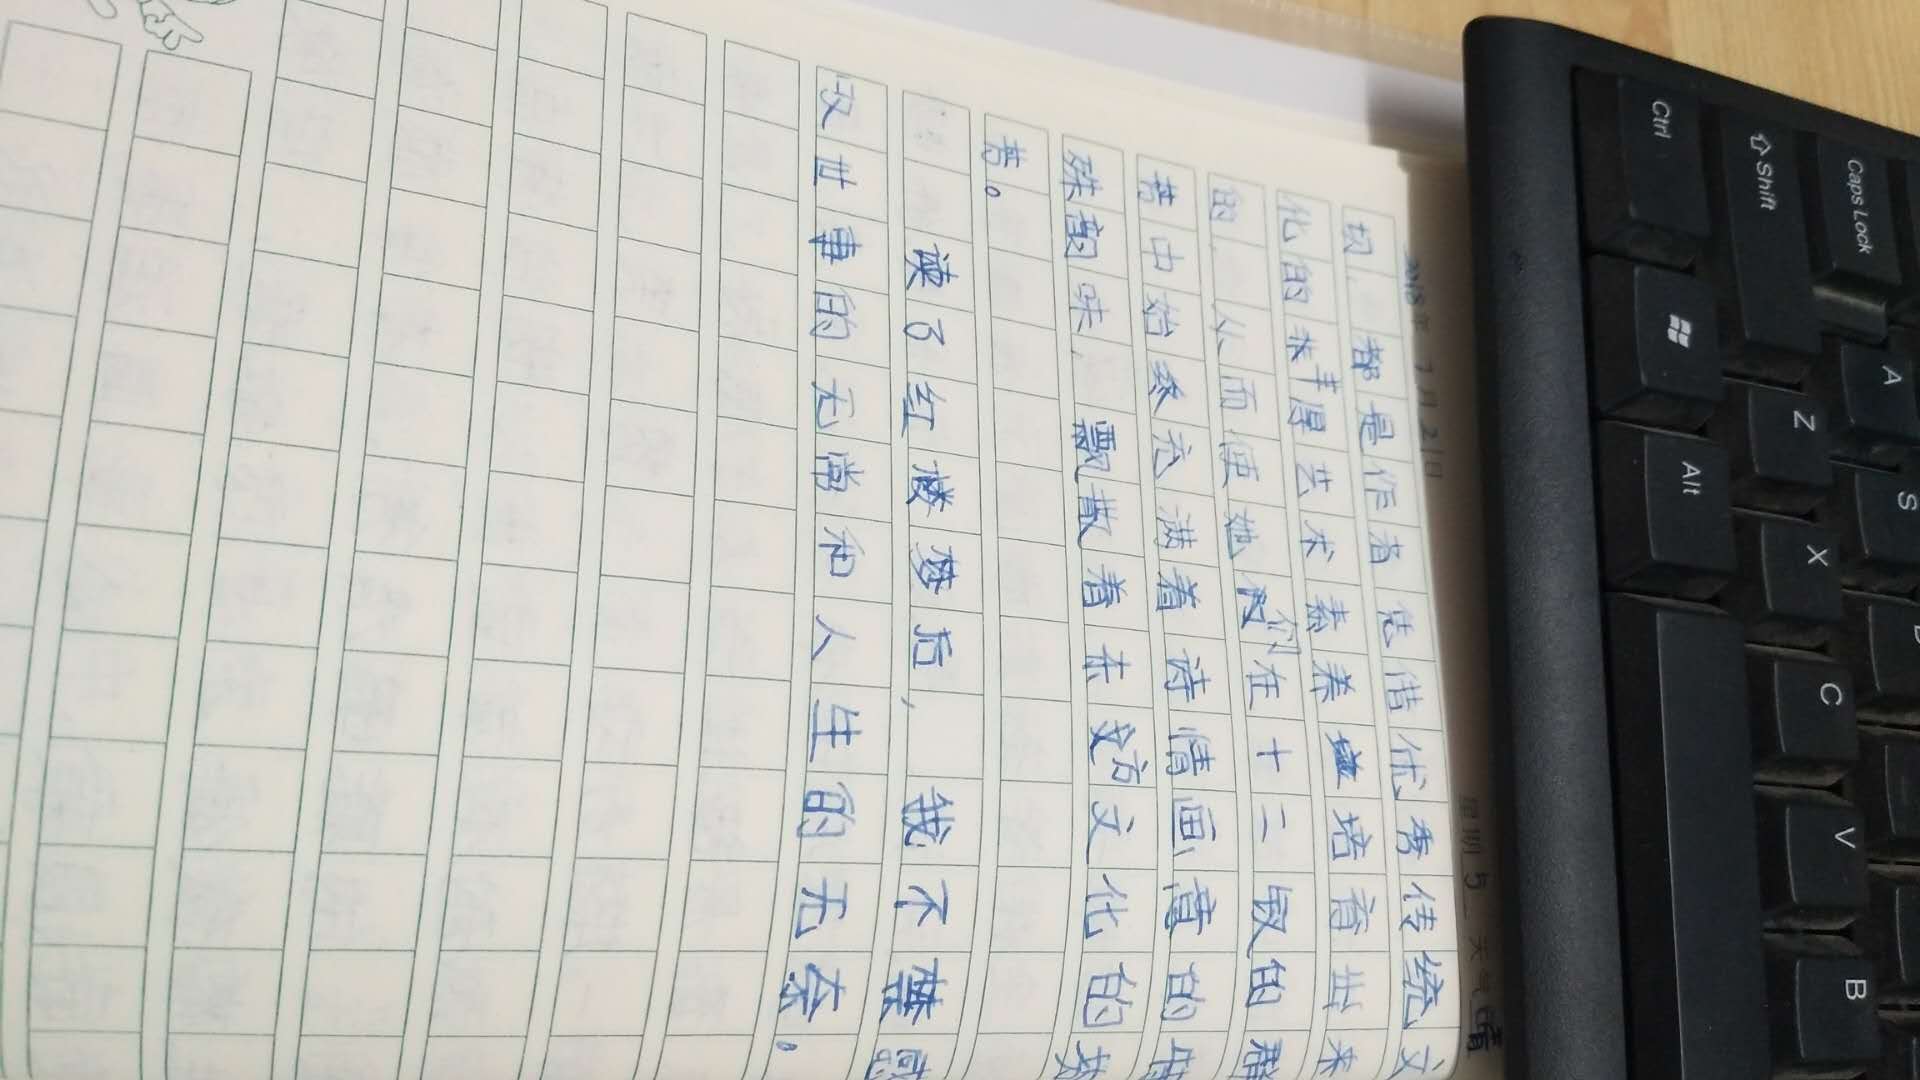 2018年 7月21日 星期五 天气晴
切,都是作者凭借优秀传统文
化的丰厚艺术素养培育出来
的,从而使她们在十二钗的群
芳中始终充满着诗情画意的特
殊韵味,飘散着东方文化的芬
芳。
读了红楼梦后,我不禁感
叹世事的无常和人生的无奈。
Caps Lock A S
Shift Z X C V B
Ctrl Alt